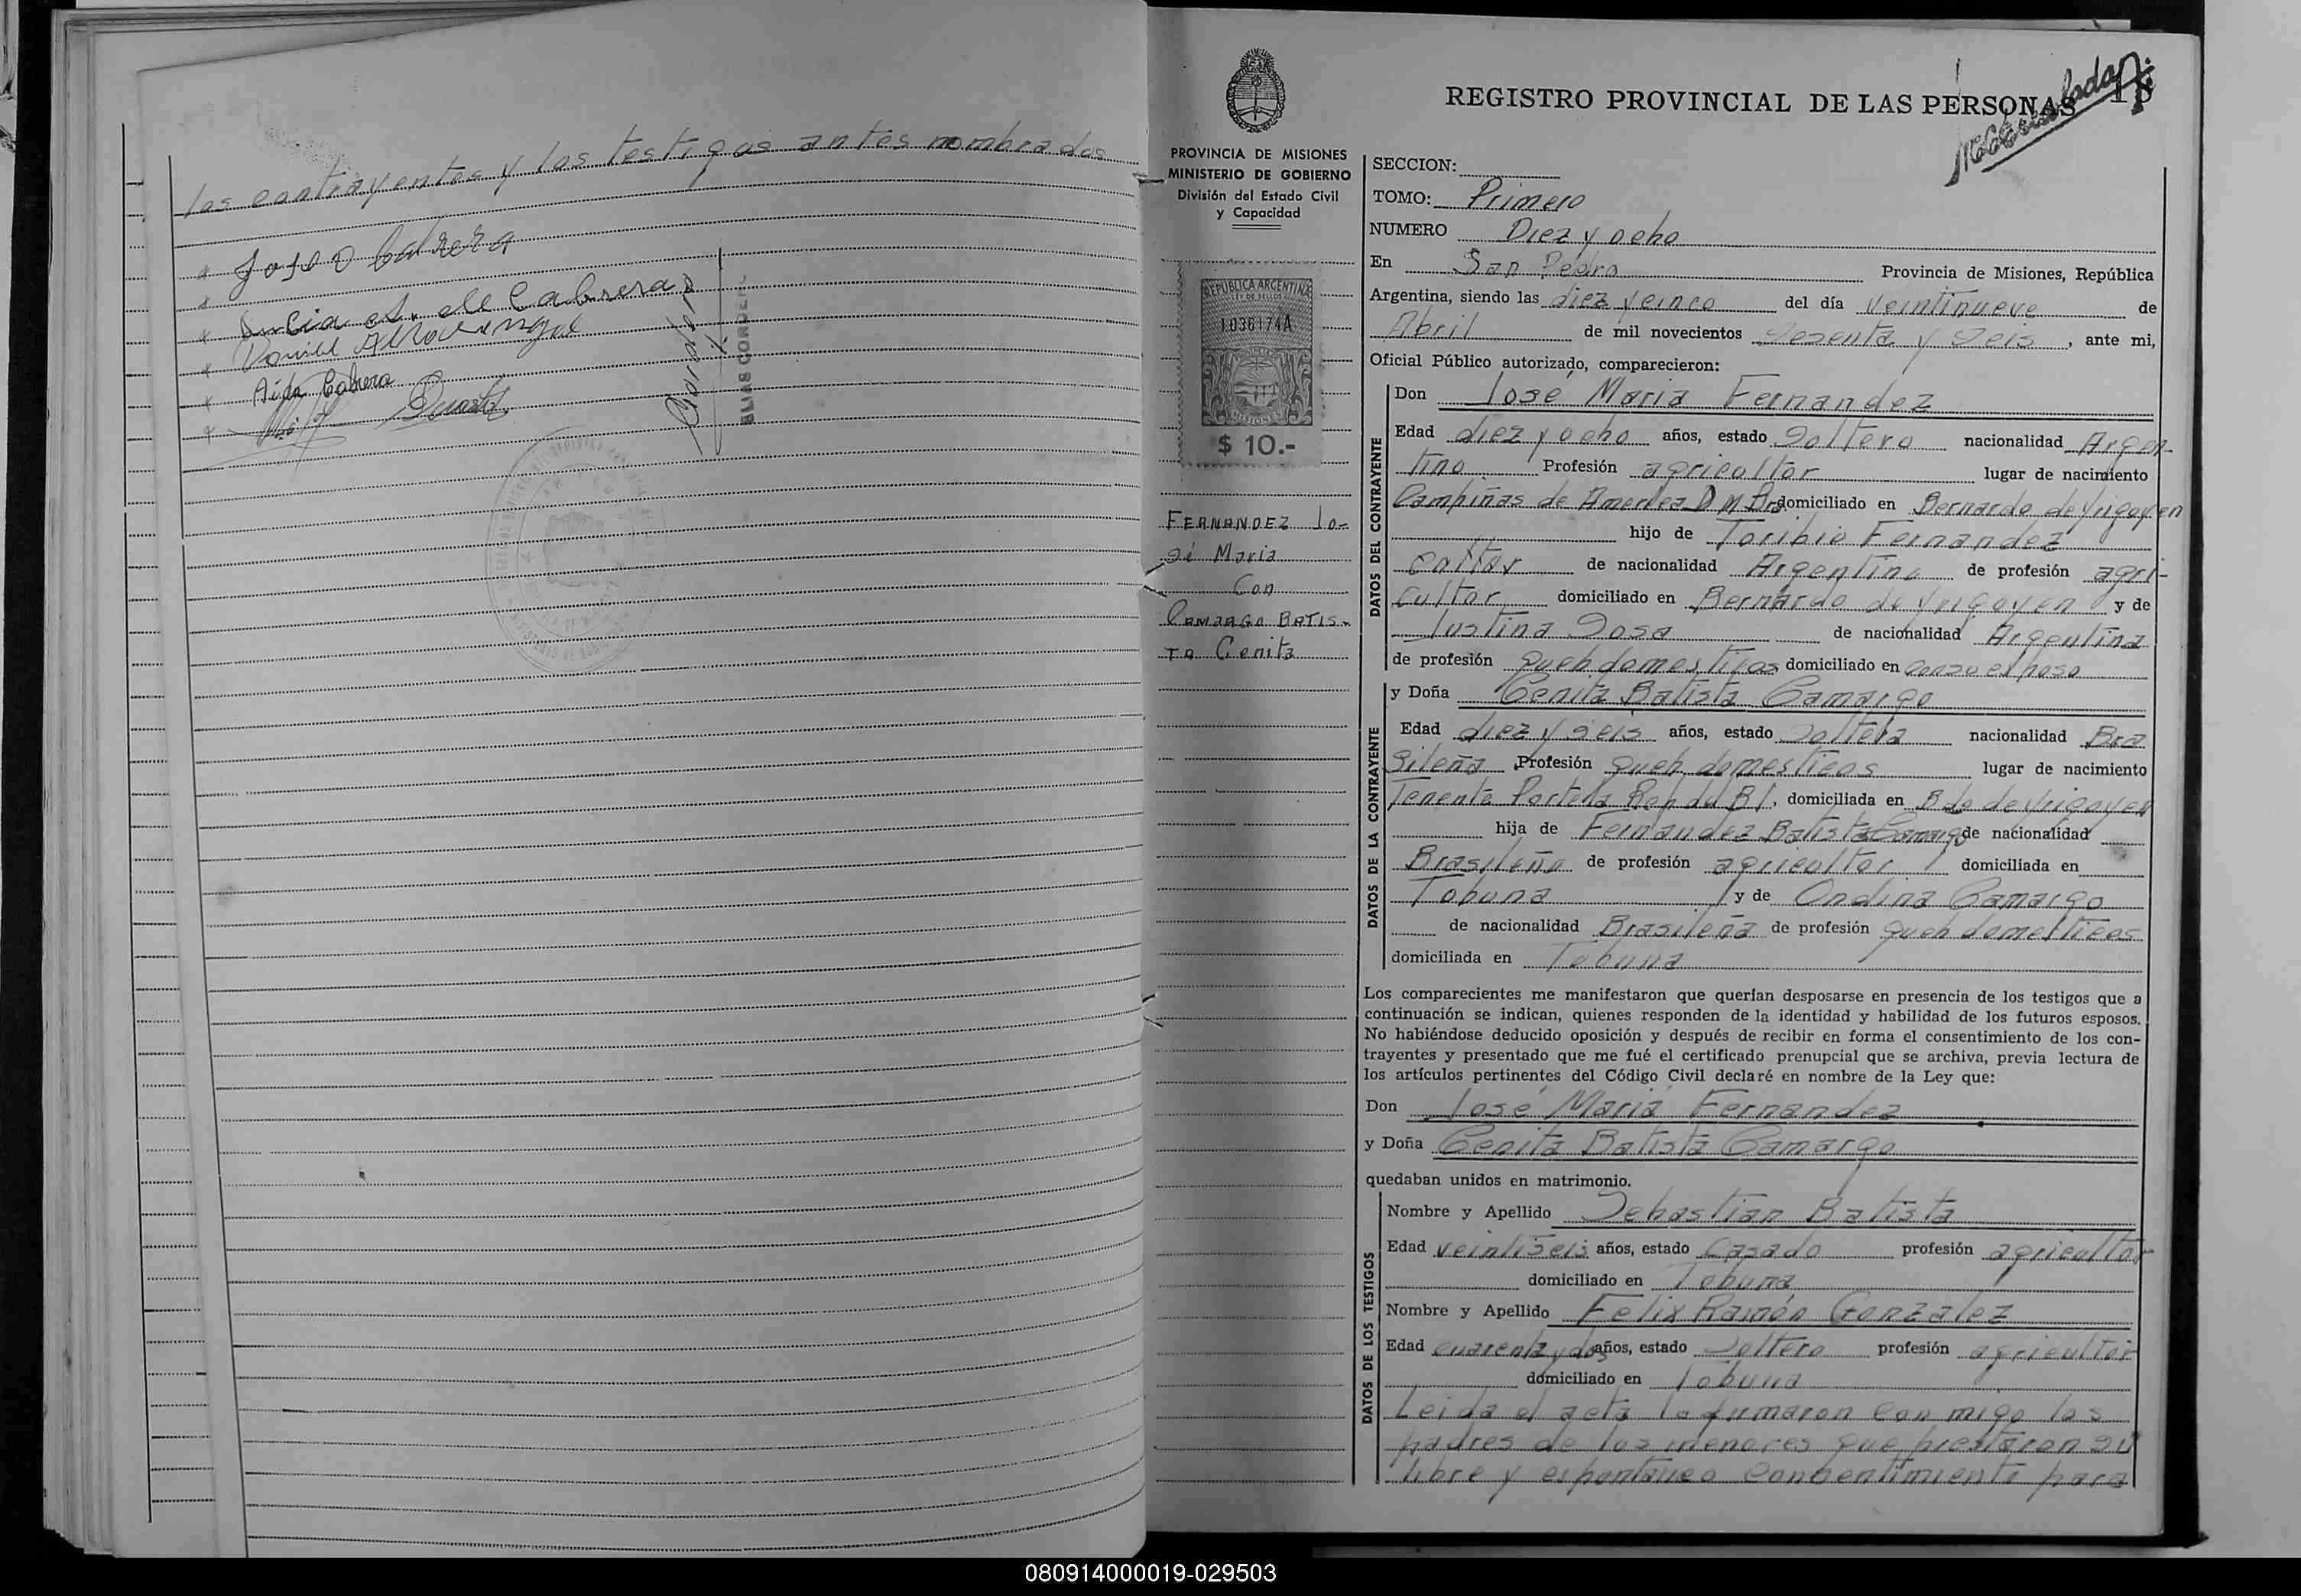 los contrayentes y los testigos antes nombrados
José D Cabrera
Lucia A. de Cabrera
Daniel
Aida Cabrera
ELIAS
REGISTRO PROVINCIAL DE LAS PERSONAS
PROVINCIA DE MISIONES
MINISTERIO DE GOBIERNO
División del Estado Civil
y Capacidad
REPUBLICA ARGENTINA
LEY DE SELLOS
1036174A
MISIONES
$ 10.-
FERNANDEZ Jo-
sé Maria
Con
CAMARGO BATIS-
TA Cenita
SECCION:
TOMO: Primero
NUMERO Diez y ocho
En San Pedro Provincia de Misiones, República
Argentina, siendo las diez y cinco del día veintinueve de
Abril de mil novecientos Sesenta y Seis, ante mi,
Oficial Público autorizado, comparecieron:
DATOS DEL CONTRAYENTE
Don José Maria Fernandez
Edad diez y ocho años, estado Soltero nacionalidad Argen-
tino Profesión agricultor lugar de nacimiento
Campiñas de America D M domiciliado en Bernardo de Yrigoyen
hijo de Toribio Fernandez
de nacionalidad Argentino de profesión agri-
cultor domiciliado en Bernardo de Yrigoyen y de
Justina Sosa de nacionalidad Argentina
de profesión queh domesticos domiciliado en
DATOS DE LA CONTRAYENTE
y Doña Cenita Batista Camargo
Edad diez y seis años, estado Soltera nacionalidad Bra
sileña Profesión queh domesticos lugar de nacimiento
Tenente Portela Rep du Bl. domiciliada en Bdo de Yrigoyen
hija de Fernandez Batista Camargo de nacionalidad
Brasileña de profesión agricultor domiciliada en
Tobuna y de Ondina Camargo
de nacionalidad Brasileña de profesión queh domesticos
domiciliada en Tobuna
Los comparecientes me manifestaron que querían desposarse en presencia de los testigos que a
continuación se indican, quienes responden de la identidad y habilidad de los futuros esposos.
No habiéndose deducido oposición y después de recibir en forma el consentimiento de los con-
trayentes y presentado que me fué el certificado prenupcial que se archiva, previa lectura de
los artículos pertinentes del Código Civil declaré en nombre de la Ley que:
Don José Maria Fernandez
y Doña Cenita Batista Camargo
quedaban unidos en matrimonio.
DATOS DE LOS TESTIGOS
Nombre y Apellido Sebastian Batista
Edad veintiseis años, estado Casado profesión agricultor
domiciliado en Tobuna
Nombre y Apellido Felix Ramón Gonzalez
Edad cuarenta y dos años, estado Soltero profesión agricultor
domiciliado en Tobuna
Leida el acta la firmaron con migo los
padres de los menores que prestaron su
libre y espontaneo consentimiento para
080914000019-029503